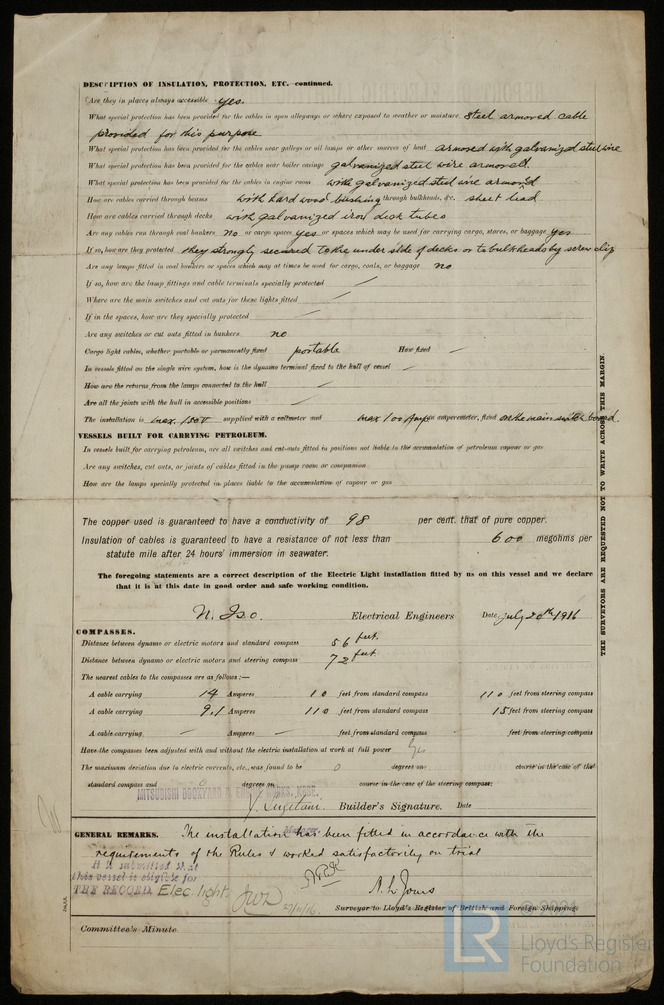 DESCRIPTION OF INSULATION, PROTECTION, ETC.—continued.
Are they in places always accessible yes.
What special protection has been provided for the cables in open alleyways or where exposed to weather or moisture steel armored cable
provided for this purpose
What special protection has been provided for the cables near galleys or oil lamps or other sources of heat armored with galvanized steel wire
What special protection has been provided for the cables near boiler casings galvanized steel wire armored
What special protection has been provided for the cables in engine room with galvanized steel wire armored
How are cables carried through beams with hard wood bushing through bulkheads, &c. sheet lead
How are cables carried through decks with galvanized iron deck tubes
Are any cables run through coal bunkers no or cargo spaces yes or spaces which may be used for carrying cargo, stores, or baggage yes
If so, how are they protected they strongly secured to the under side of decks or to bulkheads by screw clip
Are any lamps fitted in coal bunkers or spaces which may at times be used for cargo, coals, or baggage no
If so, how are the lamp fittings and cable terminals specially protected
Where are the main switches and cut outs for these lights fitted
If in the spaces, how are they specially protected
Are any switches or cut outs fitted in bunkers no
Cargo light cables, whether portable or permanently fixed portable How fixed
In vessels fitted on the single wire system, how is the dynamo terminal fixed to the hull of vessel
How are the returns from the lamps connected to the hull
Are all the joints with the hull in accessible positions
The installation is max. 150 V supplied with a voltmeter and max 100 Amp an amperemeter, fixed on the main switch board.
VESSELS BUILT FOR CARRYING PETROLEUM.
In vessels built for carrying petroleum, are all switches and cut-outs fitted in positions not liable to the accumulation of petroleum vapour or gas
Are any switches, cut outs, or joints of cables fitted in the pump room or companion
How are the lamps specially protected in places liable to the accumulation of vapour or gas
The copper used is guaranteed to have a conductivity of 98 per cent. that of pure copper.
Insulation of cables is guaranteed to have a resistance of not less than 600 megohms per
statute mile after 24 hours' immersion in seawater.
The foregoing statements are a correct description of the Electric Light installation fitted by us on this vessel and we declare
that it is at this date in good order and safe working condition.
N. Iso. Electrical Engineers Date July 20th 1916
COMPASSES.
Distance between dynamo or electric motors and standard compass 56 feet.
Distance between dynamo or electric motors and steering compass 72 feet.
The nearest cables to the compasses are as follows:—
A cable carrying 14 Amperes 10 feet from standard compass 110 feet from steering compass
A cable carrying 9.1 Amperes 110 feet from standard compass 15 feet from steering compass
A cable carrying Amperes feet from standard compass feet from steering compass
Have the compasses been adjusted with and without the electric installation at work at full power
The maximum deviation due to electric currents, etc., was found to be 0 degrees on course in the case of the
standard compass and 0 degrees on course in the case of the steering compass.
MITSUBISHI DOCKYARD & ENGINE WORKS, KOBE.
Builder's Signature. Date
Manager.
GENERAL REMARKS. The installation has been fitted in accordance with the
requirements of the Rules & worked satisfactorily on trial
It is submitted that
this vessel is eligible for
THE RECORD Elec. light. JWD 27/11/16.
A. L. Jones
Surveyor to Lloyd's Register of British and Foreign Shipping.
Committee's Minute
THE SURVEYORS ARE REQUESTED NOT TO WRITE ACROSS THIS MARGIN.
© 2021
LR Lloyd's Register
Foundation